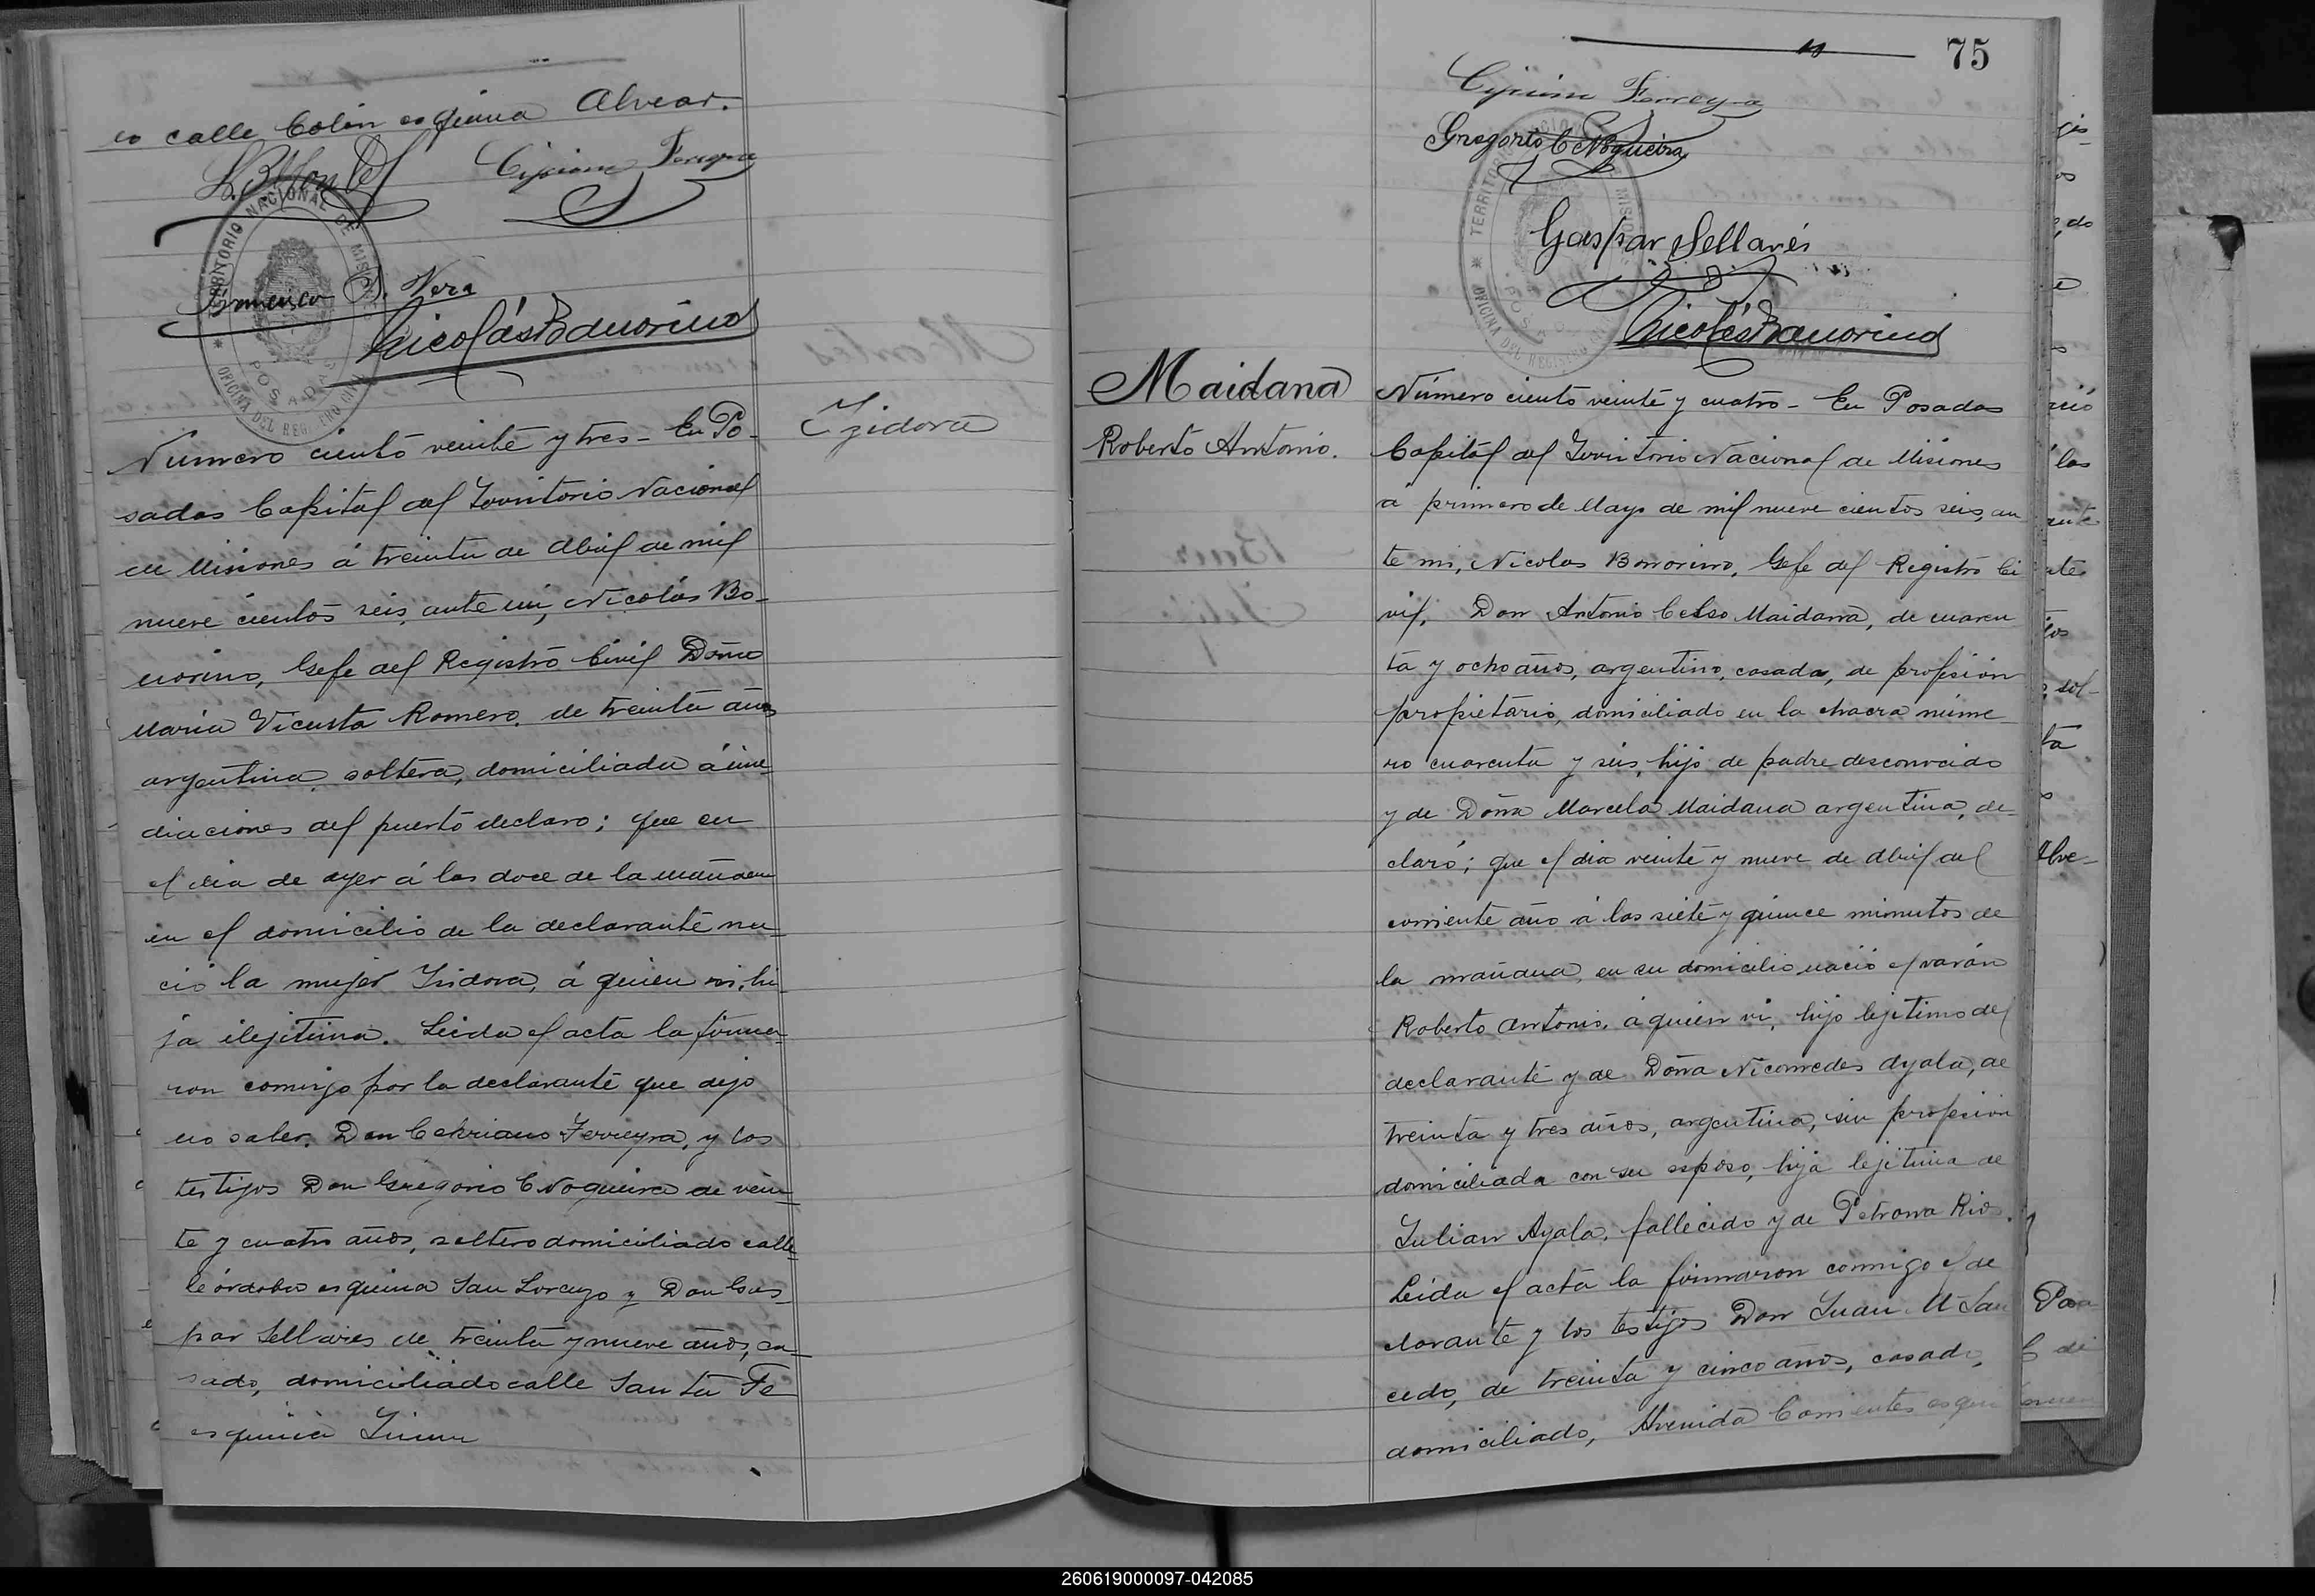 co calle Colón esquina Alvear.
Cipriano Ferreyra
Francisco S. Vera
Nicolás Bonorino
TERRITORIO NACIONAL DE MISIONES
POSADAS
OFICINA DEL REGISTRO CIVIL
Izidora
Número ciento veinte y tres - En Po-
sadas Capital del Territorio Nacional
de Misiones á treinta de Abril de mil
nueve cientos seis, ante mi, Nicolás Bo-
norino, Gefe del Registro Civil Doña
Maria Vicenta Romero, de treinta años
argentina, soltera, domiciliada á inme-
diaciones del puerto declaro; que en
el dia de ayer á las doce de la mañana
en el domicilio de la declarante na-
ció la mujer Isidora, á quien vi, hi-
ja ilejitima. Leida el acta la firma-
ron conmigo por la declarante que dijo
no saber, Don Cipriano Ferreyra, y los
testigos Don Gregorio C Nogueira de vein-
te y cuatro años, soltero domiciliado calle
Córdoba esquina San Lorenzo y Don Gas-
par Sellares de treinta y nueve años, ca-
sado, domiciliado calle Santa Fe
esquina
75
Cipriano Ferreyra
Gregorio C Nogueira
Gaspar Sellarés
Nicolás Bonorino
Maidana
Roberto Antonio.
Número ciento veinte y cuatro - En Posadas
Capital del Territorio Nacional de Misiones
á primero de Mayo de mil nueve cientos seis, an
te mi, Nicolas Bonorino, Gefe del Registro Ci
vil, Don Antonio Celso Maidana, de cuaren
ta y ocho años, argentino, casado, de profesión
propietario, domiciliado en la chacra núme-
ro cuarenta y seis, hijo de padre desconocido
y de Doña Marcela Maidana argentina, de-
claró; que el dia veinte y nueve de Abril del
corriente año á las siete y quince minutos de
la mañana, en su domicilio nació el varón
Roberto Antonio, á quien vi, hijo lejitimo del
declarante y de Doña Nicomedes Ayala, de
treinta y tres años, argentina, sin profesión
domiciliada con su esposo, hija lejitima de
Julian Ayala, fallecido y de Petrona Rios.
Leida el acta la firmaron conmigo el de
clarante y los testigos Don Juan M San
cedo, de treinta y cinco años, casado,
domiciliado, Avenida Corrientes esqui
260619000097-042085